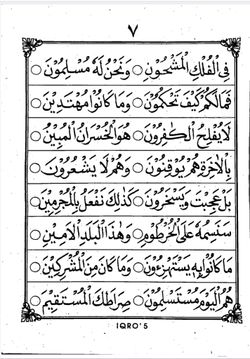 ٧
فِي الْفُلْكِ الْمَشْحُوْنِ ○ وَنَحْنُ لَهُ مُسْلِمُوْنَ ○
فَمَالَكُمْ كَيْفَ تَحْكُمُوْنَ ○ وَمَا كَانُوْا مُهْتَدِيْنَ ○
لَا يُفْلِحُ الْكٰفِرُوْنَ ○ هُوَ الْخُسْرَانُ الْمُبِيْنُ ○
بِالْاٰخِرَةِ هُمْ يُوْقِنُوْنَ ○ وَهُمْ لَا يَشْعُرُوْنَ ○
بَلْ عَجِبْتَ وَيَسْخَرُوْنَ ○ كَذٰلِكَ نَفْعَلُ بِالْمُجْرِمِيْنَ ○
سَنَسِمُهُ عَلَى الْخُرْطُوْمِ ○ وَهٰذَا الْبَلَدِ الْاَمِيْنِ ○
مَا كَانُوْا بِهِ يَسْتَهْزِءُوْنَ ○ وَمَا كَانَ مِنَ الْمُشْرِكِيْنَ ○
هُمُ الْيَوْمَ مُسْتَسْلِمُوْنَ ○ صِرَاطَكَ الْمُسْتَقِيْمَ ○
IQRO'5